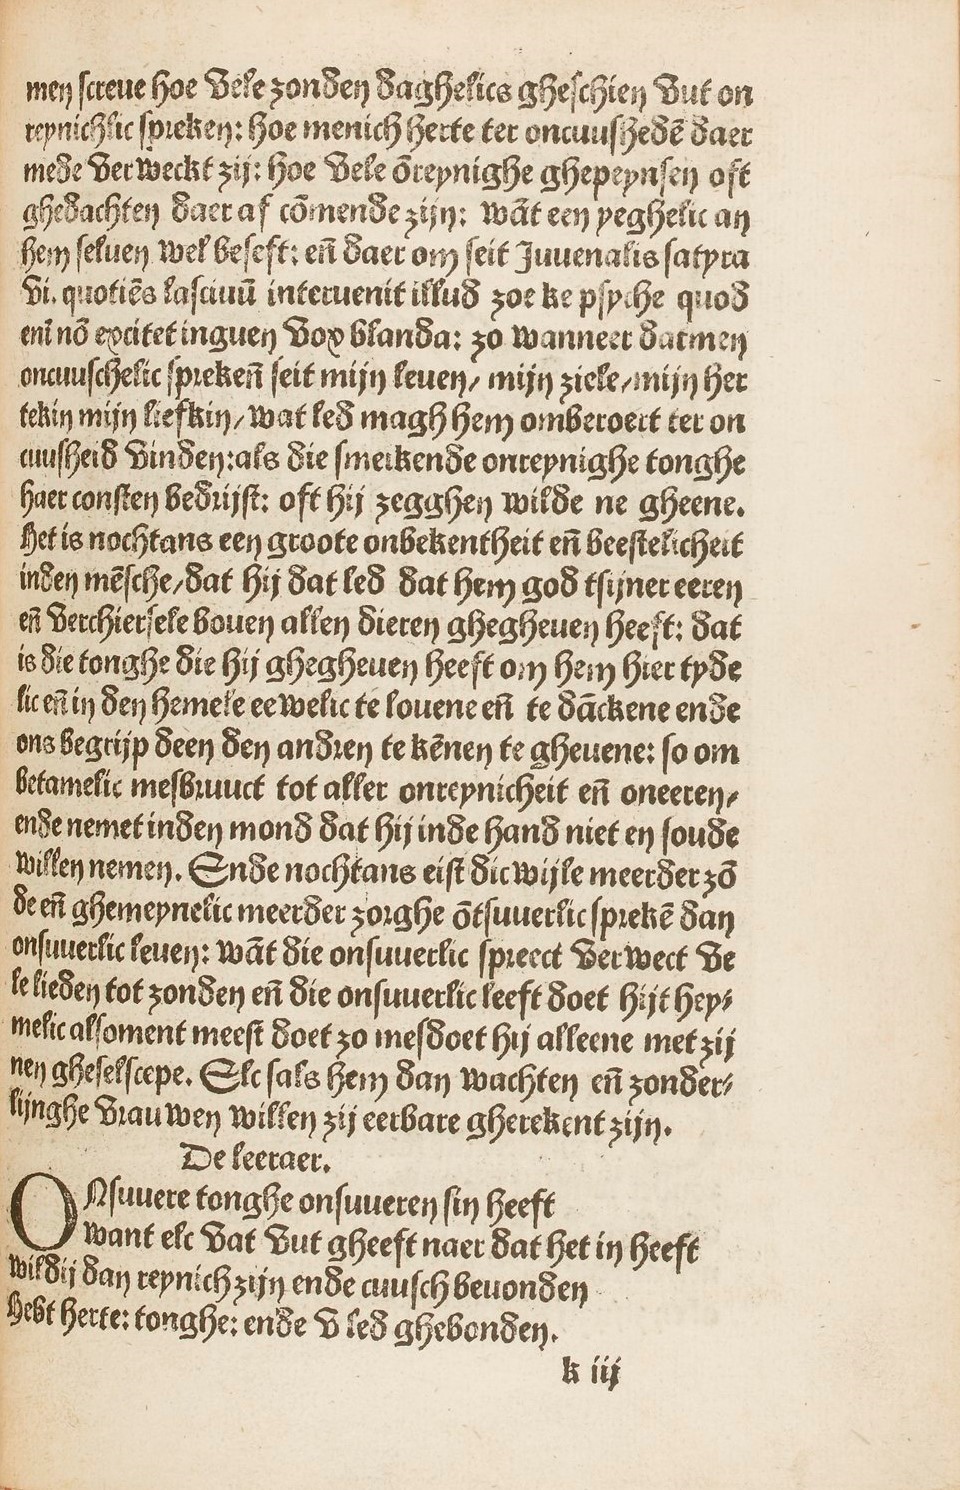 men screue hoe vele zonden daghelics gheschien vut on
reynichlic spreken: hoe menich herte ter oncuushedē daer
mede verweckt zij: hoe vele ōreynighe ghepeynsen oft
ghedachten daer af cōmende zijn: wāt een yeghelic an
hem seluen wel beseft: eñ daer om seit Juuenalis satyra
vi. quotiēs lasciuū interuenit illud zoe ke psyche quod
enī nō excitet inguen vox blanda: zo wanneer datmen
oncuuschelic sprekeñ seit mijn leuen/ mijn ziele/mijn her
tekin mijn liefkin/wat led magh hem omberoert ter on
cuusheid vinden:als die smeikende onreynighe tonghe
haer consten bedrijft: oft hij zegghen wilde ne gheene.
Het is nochtans een groote onbekentheit eñ beestelicheit
inden mēsche/dat hij dat led dat hem god tsijner eeren
eñ verchiersele bouen allen dieren ghegheuen heeft: dat
is die tonghe die hij ghegheuen heeft om hem hier tyde
lic eñ in den hemele eewelic te louene eñ te dāckene ende
ons begrijp deen den andren te kēnen te gheuene: so om
betamelic mesbruuct tot aller onreynicheit eñ oneeren/
ende nemet inden mond dat hij inde hand niet en soude
willen nemen. Ende nochtans eist dicwijle meerder zō
de eñ ghemeynelic meerder zorghe ōtsuuerlic sprekē dan
onsuuerlic leuen: wāt die onsuuerlic spreect verwect ve
le lieden tot zonden eñ die onsuuerlic leeft doet hijt hey/
melic alsoment meest doet zo mesdoet hij alleene met zij
nen gheselscepe. Elc sals hem dan wachten eñ zonder/
lijnghe vrauwen willen zij eerbare gherekent zijn.
De leeraer.
ONsuuere tonghe onsuueren sin heeft
want elc vat vut gheeft naer dat het in heeft
wildij dan reynich zijn ende cuusch beuonden
Hebt herte: tonghe: ende v led ghebonden.
k iij